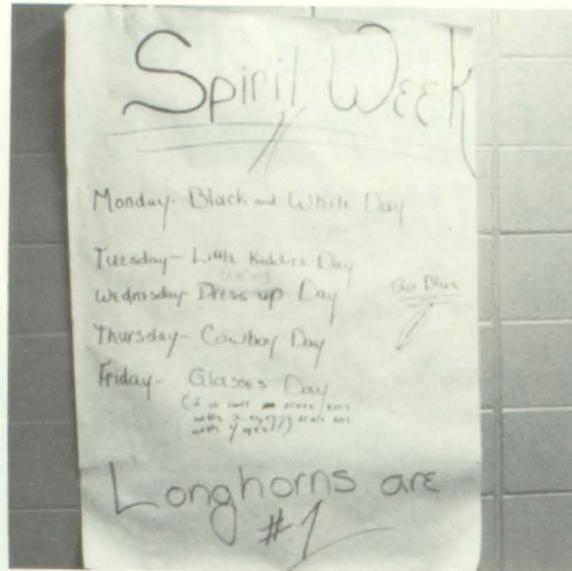 Spirit Week
Monday- Black and White Day
Tuesday- Little Kiddies Day
Wednesday- Dress up Day
Go Blue
Thursday- Cowboy Day
Friday- Glasses Day
with
with eyes
Longhorns are
#1